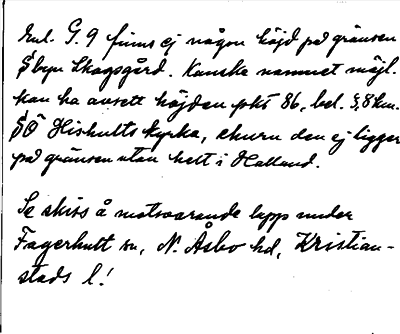 Enl. G. 9 finns ej någon höjd på gränsen
S byn Skogsgård. Kanske namnet möjl.
kan ha avsett höjden pkt 86, bel. 3,8 km.
SÖ Hishults kyrka, ehuru den ej ligger
på gränsen utan helt i Halland.
Se skiss å motsvarande lapp under
Fagerhult sn, N. Åsbo hd, Kristian-
stads l!